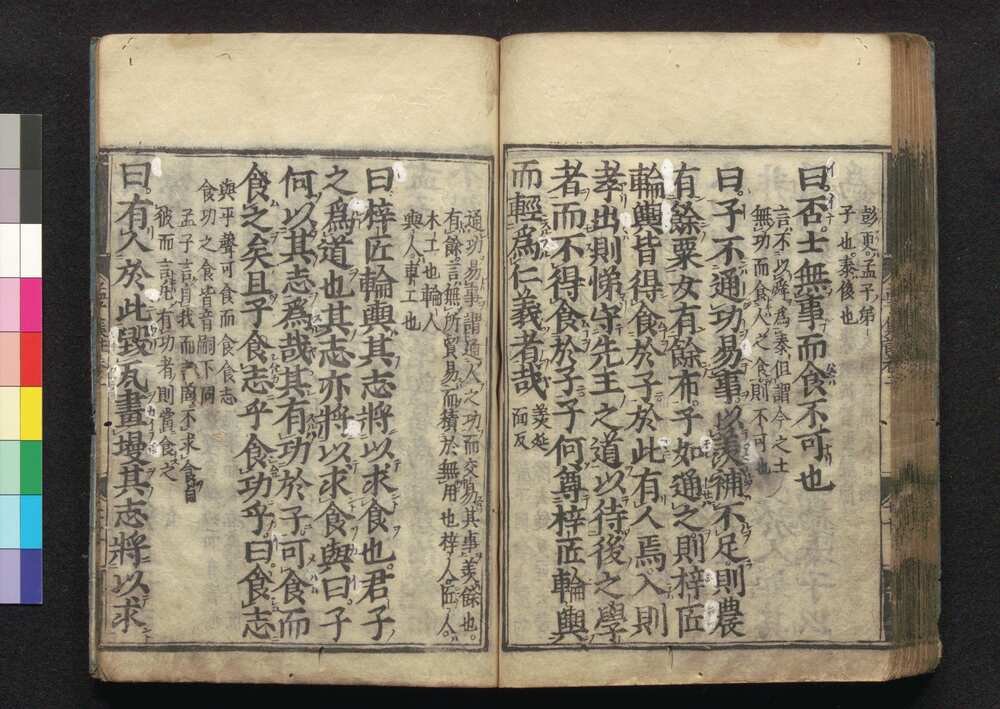 彭更孟子弟
子也泰後也
曰否士無事而食不可也
言不以舜爲泰但謂今之士
無功而食人之食則不可也
曰子不通功易事以羨補不足則農
有餘粟女有餘布子如通之則梓匠
輪輿皆得食於子於此有人焉入則
孝出則悌守先王之道以待後之學
者而不得食於子子何尊梓匠輪輿
而輕爲仁義者哉
羨延
面反
通功易事謂通人之功而交易其事羨餘也
有餘言無所貿易而積於無用也梓人匠人
木工也輪人
輿人車工也
曰梓匠輪輿其志將以求食也君子
之爲道也其志亦將以求食與曰子
何以其志爲哉其有功於子可食而
食之矣且子食志乎食功乎曰食志
與平聲可食而食食志
食功之食皆音嗣下同
孟子言自我而言固不求食自
彼而言凡有功者則當食之
曰有人於此毀瓦畫墁其志將以求